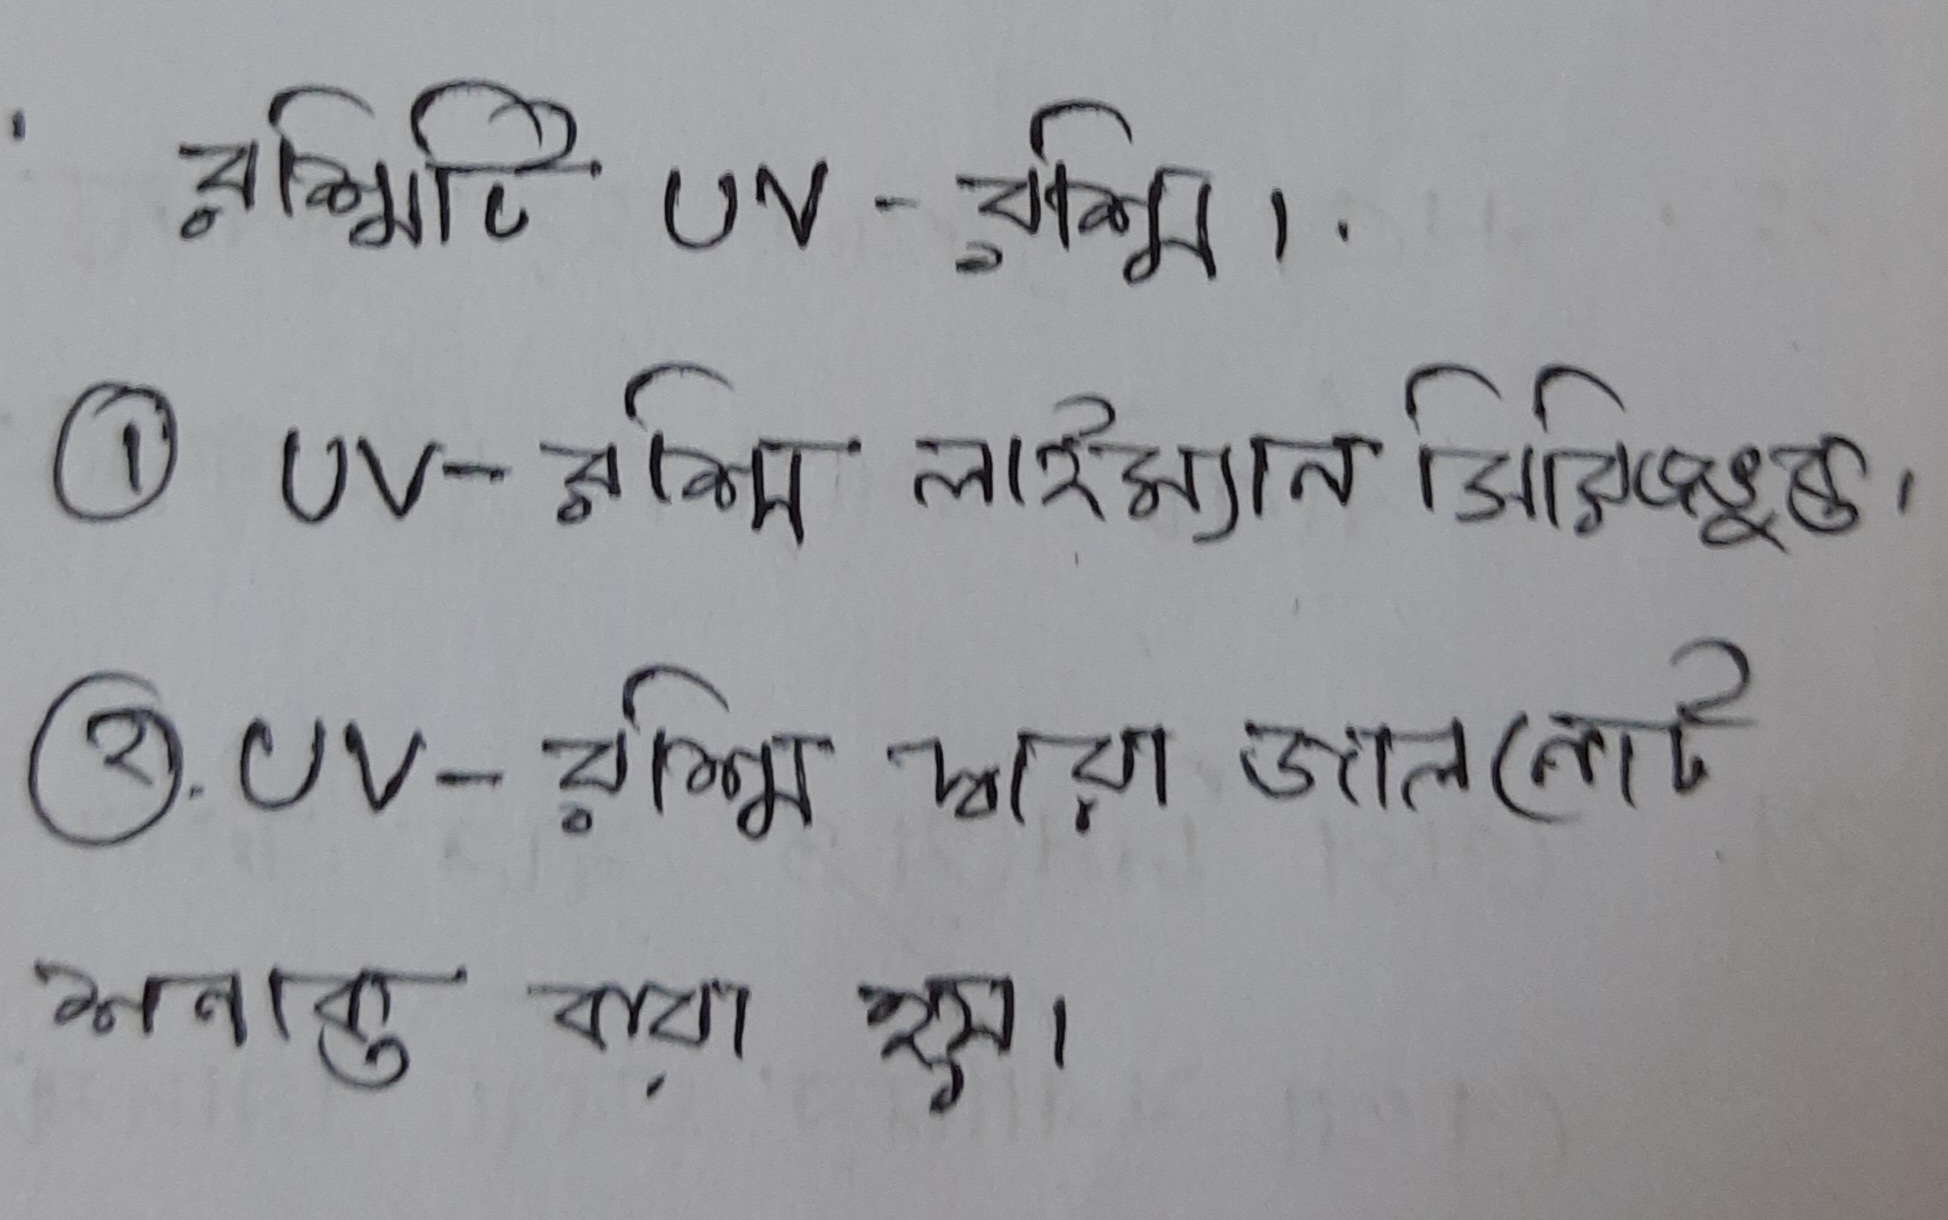 রশ্মিটি UV - রশ্মি।
① UV - রশ্মি লাইম্যান সিরিজভুক্ত।
②. UV - রশ্মি দ্বারা জালনোট
শনাক্ত করা হয়।